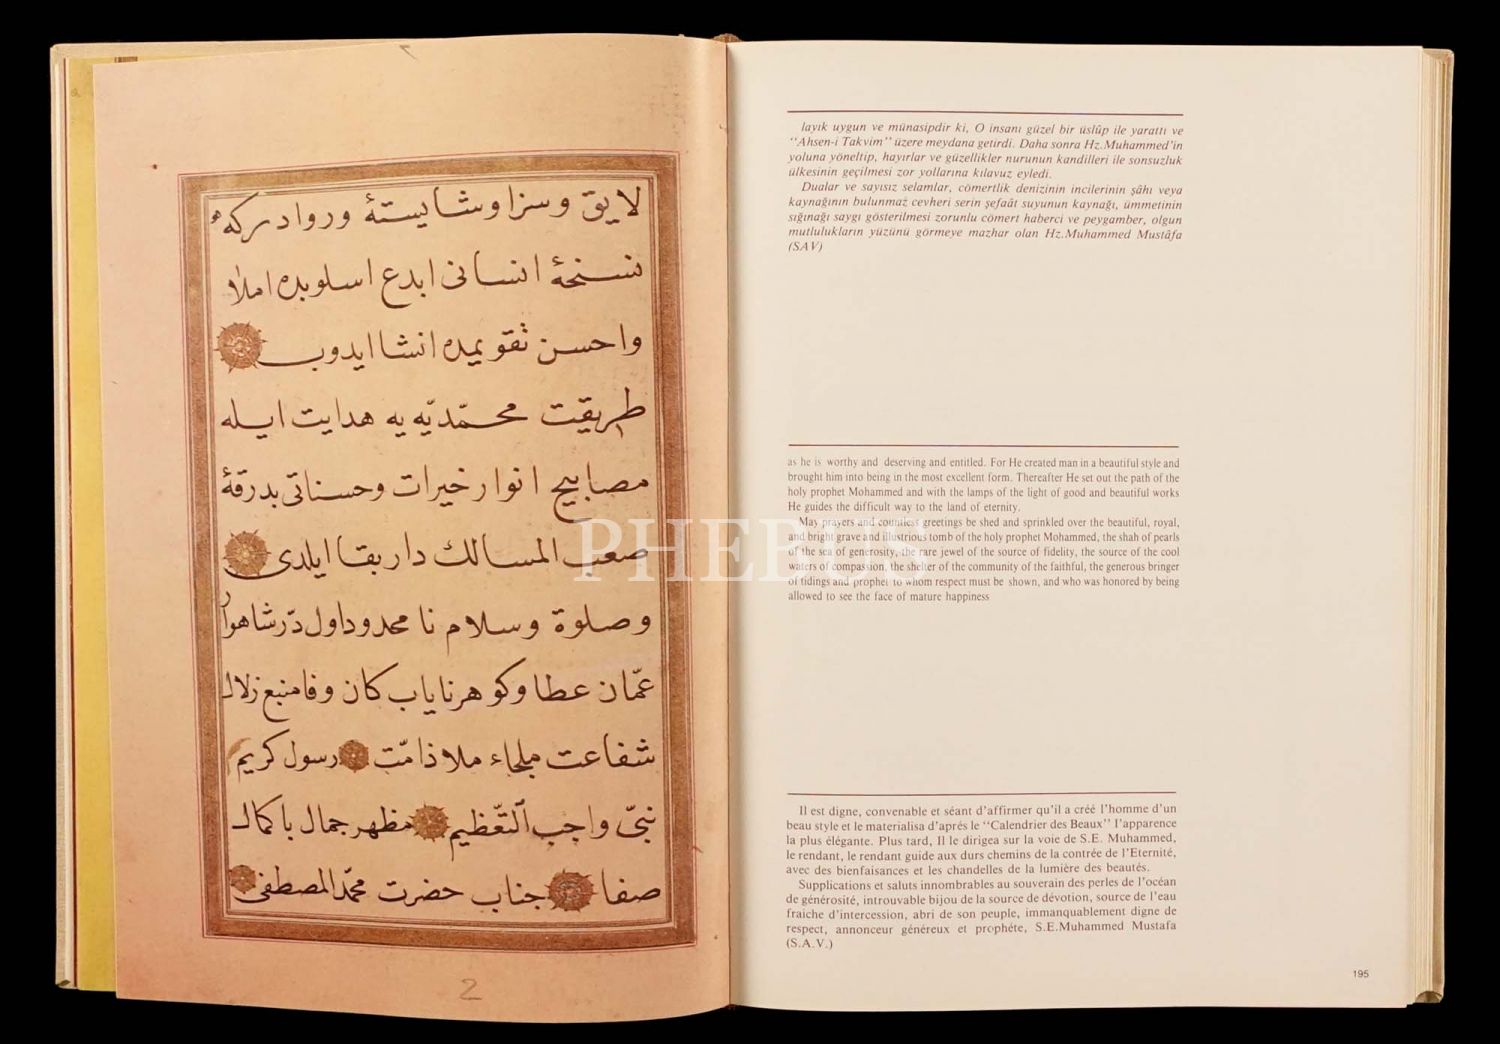 لایق وسزا وشایستهٔ وروادرکه
نسخهٔ انسانی ابدع اسلوبده املا
واحسن تقویمده انشا ایدوب
طریقت محمّدیّه یه هدایت ایله
مصابیح انوار خیرات وحسناتی بدرقهٔ
صعب المسالك دار بقا ایلدی
وصلوة وسلام نا محدود اول درّ شاهوار
عمّان عطا وکوهر نایاب کان وفا منبع زلال
شفاعت ملجاء ملاذ امّت رسول کریم
نبیّ واجب التّعظیم مظهر جمال باکمال
صفا جناب حضرت محمّد المصطفی
2
layık uygun ve münasipdir ki, O insanı güzel bir üslûp ile yarattı ve
"Ahsen-i Takvim" üzere meydana getirdi. Daha sonra Hz.Muhammed'in
yoluna yöneltip, hayırlar ve güzellikler nurunun kandilleri ile sonsuzluk
ülkesinin geçilmesi zor yollarına kılavuz eyledi.
Dualar ve sayısız selamlar, cömertlik denizinin incilerinin şâhı veya
kaynağının bulunmaz cevheri serin şefaât suyunun kaynağı, ümmetinin
sığınağı saygı gösterilmesi zorunlu cömert haberci ve peygamber, olgun
mutlulukların yüzünü görmeye mazhar olan Hz.Muhammed Mustâfa
(SAV)
as he is worthy and deserving and entitled. For He created man in a beautiful style and
brought him into being in the most excellent form. Thereafter He set out the path of the
holy prophet Mohammed and with the lamps of the light of good and beautiful works
He guides the difficult way to the land of eternity.
May prayers and countless greetings be shed and sprinkled over the beautiful, royal,
and bright grave and illustrious tomb of the holy prophet Mohammed, the shah of pearls
of the sea of generosity, the rare jewel of the source of fidelity, the source of the cool
waters of compassion, the shelter of the community of the faithful, the generous bringer
of tidings and prophet to whom respect must be shown, and who was honored by being
allowed to see the face of mature happiness
Il est digne, convenable et séant d'affirmer qu'il a créé l'homme d'un
beau style et le materialisa d'aprés le "Calendrier des Beaux" l'apparence
la plus élégante. Plus tard, Il le dirigea sur la voie de S.E. Muhammed,
le rendant, le rendant guide aux durs chemins de la contrée de l'Eternité,
avec des bienfaisances et les chandelles de la lumière des beautés.
Supplications et saluts innombrables au souverain des perles de l'océan
de générosité, introuvable bijou de la source de dévotion, source de l'eau
fraiche d'intercession, abri de son peuple, immanquablement digne de
respect, annonceur généreux et prophéte, S.E.Muhammed Mustafa
(S.A.V.)
195
PHEBUS